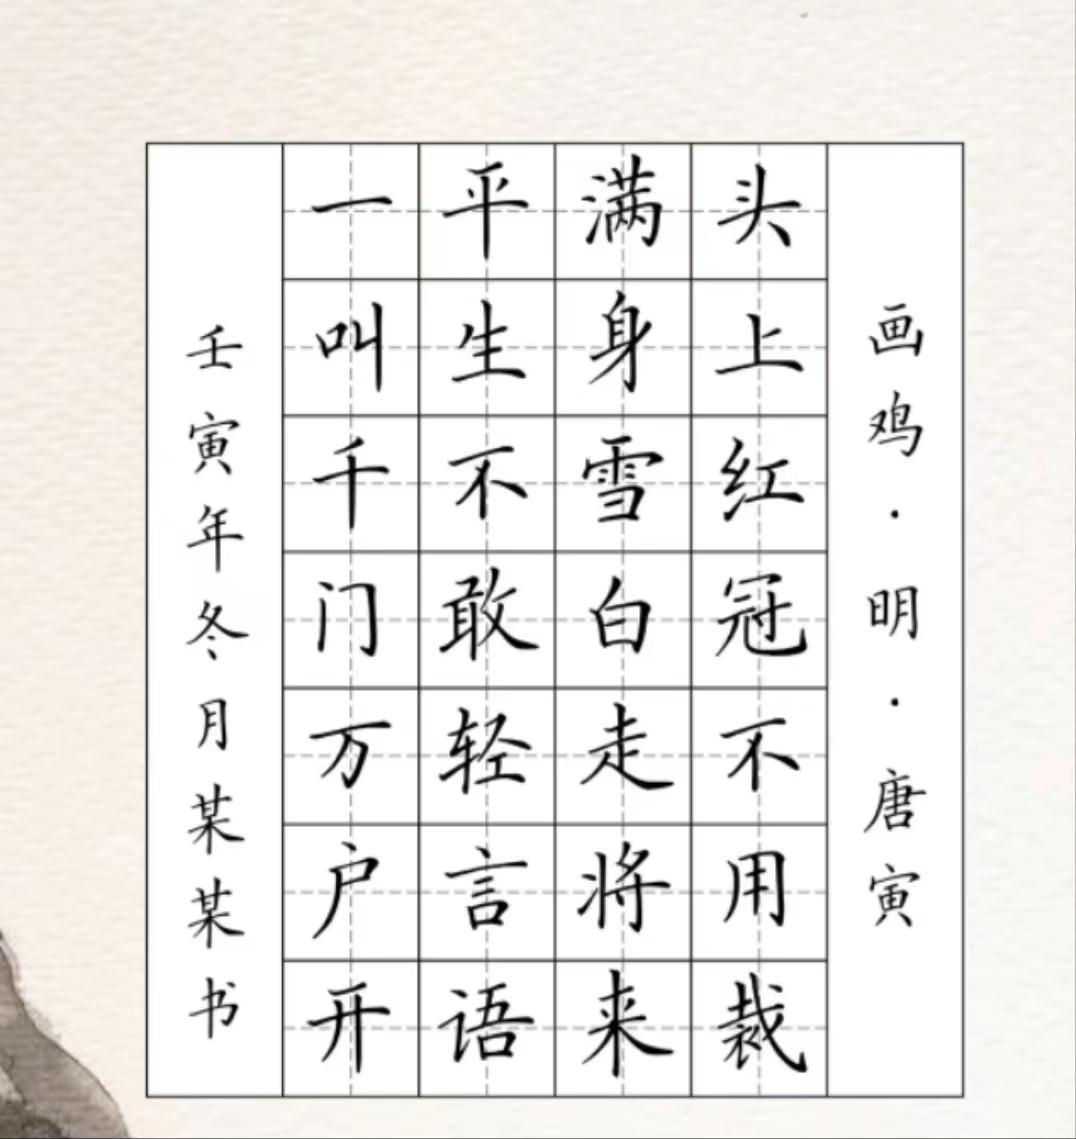 画鸡·明·唐寅
头上红冠不用裁
满身雪白走将来
平生不敢轻言语
一叫千门万户开
壬寅年冬月某某书